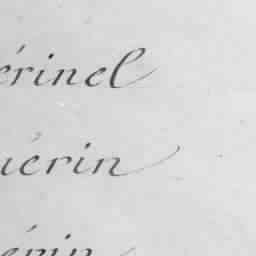 érinel
uérin
érin